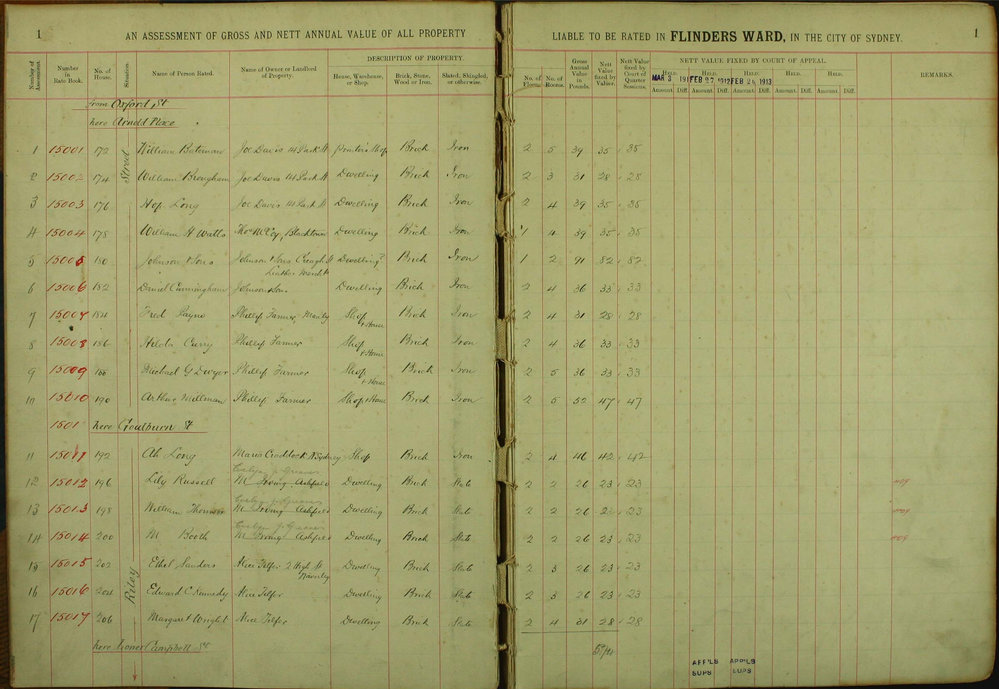 1
AN ASSESSMENT OF GROSS AND NETT ANNUAL VALUE OF ALL PROPERTY
LIABLE TO BE RATED IN FLINDERS WARD, IN THE CITY OF SYDNEY.
1
Number of Assessment.
Number in Rate Book.
No. of House.
Situation.
Name of Person Rated.
Name of Owner or Landlord of Property.
DESCRIPTION OF PROPERTY
House, Warehouse, or Shop.
Brick, Stone, Wood or Iron.
Slated, Shingled, or otherwise.
No. of Floors.
No. of Rooms.
Gross Annual Value in Pounds.
Nett Value fixed by Valuer.
Nett Value fixed by Court of Quarter Sessions.
NETT VALUE FIXED BY COURT OF APPEAL.
Held. Held. Held. Held. Held.
MAR 3 191 FEB 27 1912 FEB 26 1913
Amount. Diff. Amount. Diff. Amount. Diff. Amount. Diff. Amount. Diff.
REMARKS.
from Oxford St
here Arnold Place
Riley Street
1 15001 172 William Bateman Joe Davis 141 Park St Shop Brick Iron 2 5 39 35 35
2 15002 174 William Brougham Joe Davis 141 Park St Dwelling Brick Iron 2 3 31 28 28
3 15003 176 Hop Long Joe Davis 141 Park St Dwelling Brick Iron 2 4 39 35 35
4 15004 178 William H Watts Thos McCoy, Blacktown Dwelling Brick Iron 1 4 39 35 35
5 15005 180 Johnson & Sons Johnson & Sons St Dwelling Brick Iron 1 2 91 82 82
Leather Mercht
6 15006 182 Daniel Cunningham Johnson & Son Dwelling Brick Iron 2 4 36 33 33
7 15007 184 Fred Payne Phillip Farmer, Manly Shop & House Brick Iron 2 4 31 28 28
8 15008 186 Hilda Curry Phillip Farmer Shop & House Brick Iron 2 4 36 33 33
9 15009 188 Michael G Dwyer Phillip Farmer Shop & House Brick Iron 2 5 36 33 33
10 15010 190 Arthur Millman Phillip Farmer Shop & House Brick Iron 2 5 52 47 47
1501 here Goulburn St
11 15011 192 Ah Long Maria Craddock N Sydney Shop Brick Iron 2 4 46 42 42
12 15012 196 Lily Russell M Irving Ashfield Dwelling Brick Slate 2 2 26 23 23
13 15013 198 William Thomson M Irving Ashfield Dwelling Brick Slate 2 2 26 23 23
14 15014 200 M Booth M Irving Ashfield Dwelling Brick Slate 2 2 26 23 23
15 15015 202 Ethel Sanders Alice Telfer 2 High St Waverley Dwelling Brick Slate 2 3 26 23 23
16 15016 204 Edward C Kennedy Alice Telfer Dwelling Brick Slate 2 3 26 23 23
17 15017 206 Margaret Wright Alice Telfer Dwelling Brick Slate 2 4 31 28 28
here Lower Campbell St
APP'LS APP'LS
SUPS SUPS